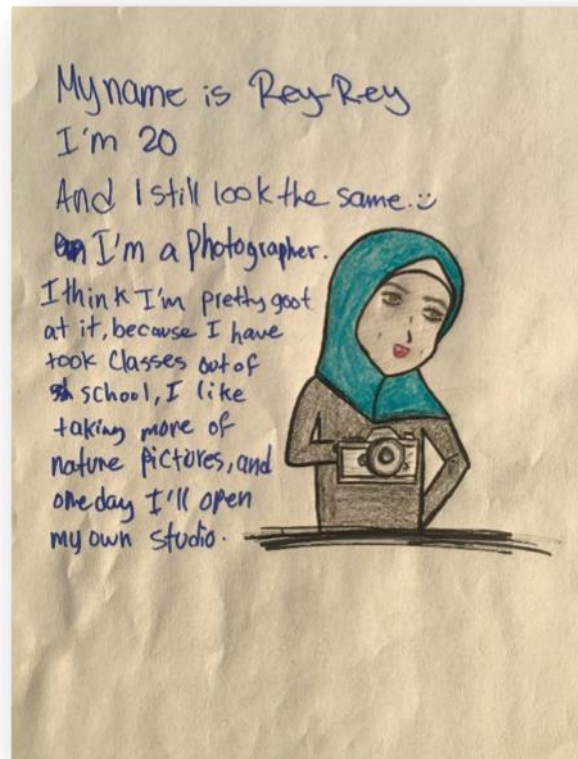 My name is Rey-Rey
I'm 20
And I still look the same.
I'm a Photographer.
I think I'm pretty goot
at it, because I have
took Classes out of
school, I like
taking more of
nature pictures, and
one day I'll open
my own studio.